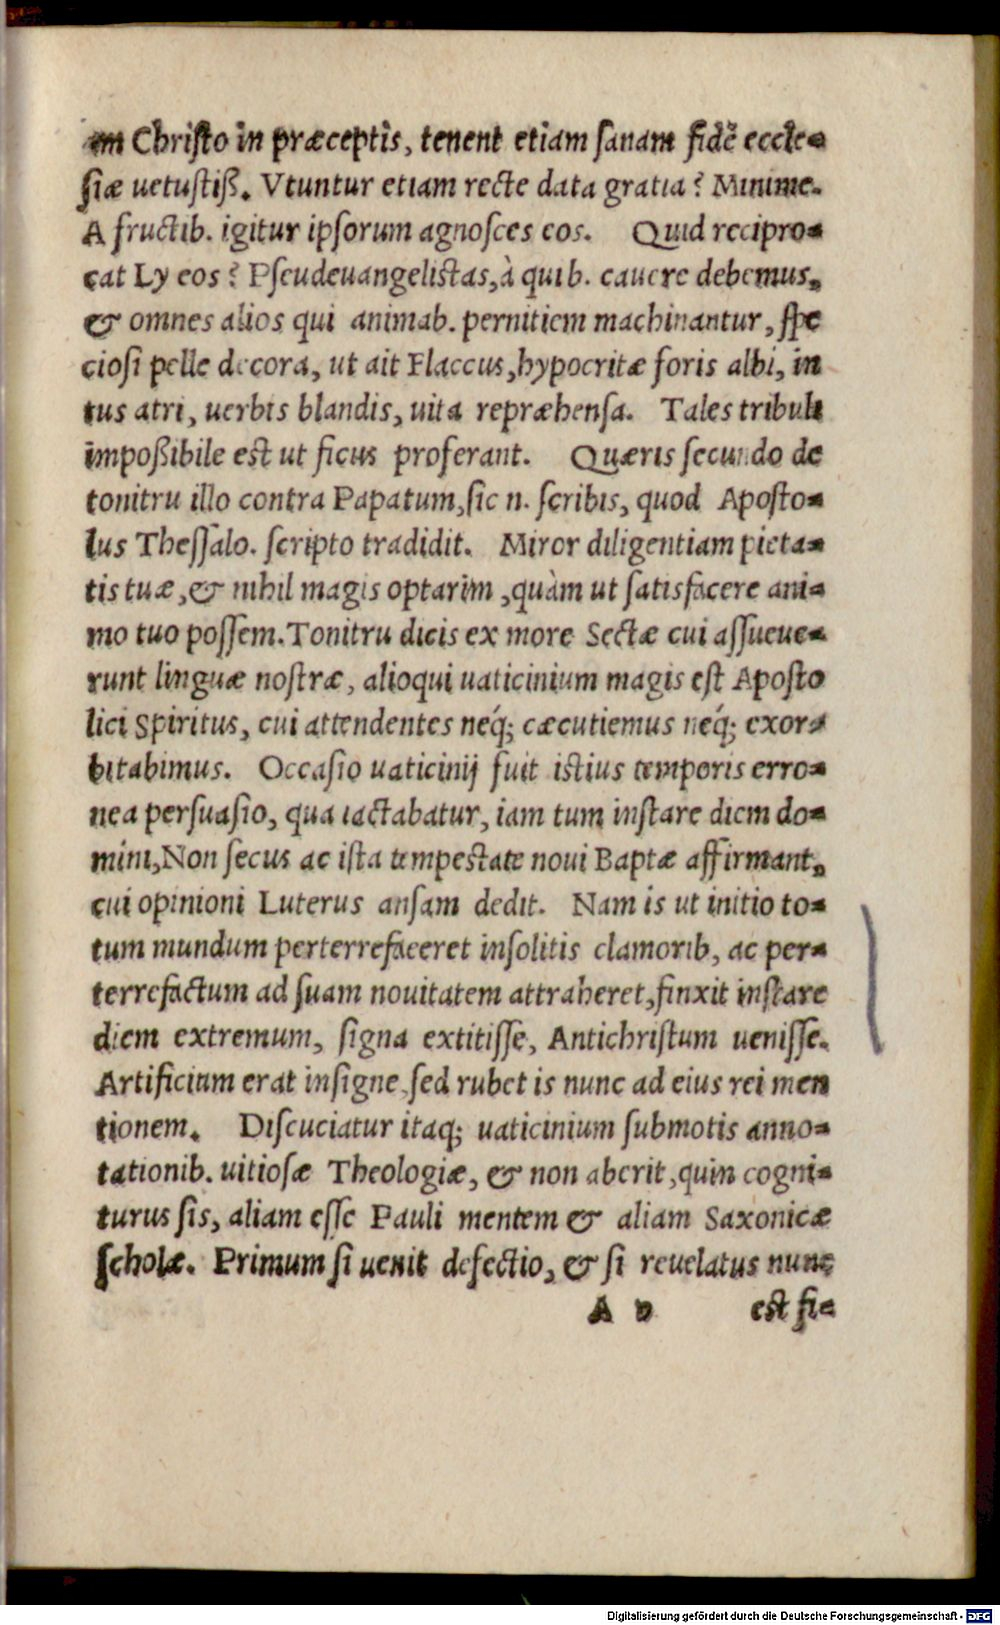 im Christo in præceptis, tenent etiam sanam fidẽ eccle-
siæ uetustiß. Vtuntur etiam recte data gratia? Minime.
A fructib. igitur ipsorum agnosces eos. Quid recipro-
cat Ly eos? Pseudeuangelistas, à quib. cauere debemus,
& omnes alios qui animab. pernitiem machinantur, spe
ciosi pelle decora, ut ait Flaccus, hypocritæ foris albi, in
tus atri, uerbis blandis, uita repræhensa. Tales tribuli
impoßibile est ut ficus proferant. Quæris secundo de
tonitru illo contra Papatum, sic n. scribis, quod Aposto-
lus Thessalo. scripto tradidit. Miror diligentiam pieta-
tis tuæ, & nihil magis optarim, quàm ut satisfacere ani-
mo tuo possem. Tonitru dicis ex more Sectæ cui assueue-
runt linguæ nostræ, alioqui uaticinium magis est Aposto
lici Spiritus, cui attendentes neq́; cæcutiemus neq́; exor-
bitabimus. Occasio uaticinij fuit istius temporis erro-
nea persuasio, qua iactabatur, iam tum instare diem do-
mini, Non secus ac ista tempestate noui Baptæ affirmant,
cui opinioni Luterus ansam dedit. Nam is ut initio to-
tum mundum perterrefaceret insolitis clamorib, ac per-
terrefactum ad suam nouitatem attraheret, finxit instare
diem extremum, signa extitisse, Antichristum uenisse.
Artificium erat insigne, sed rubet is nunc ad eius rei men
tionem. Discuciatur itaq; uaticinium submotis anno-
tationib. uitiosæ Theologiæ, & non aberit, quin cogni-
turus sis, aliam esse Pauli mentem & aliam Saxonicæ
scholæ. Primum si uenit defectio, & si reuelatus nunc
A v est fi-
Digitalisierung gefördert durch die Deutsche Forschungsgemeinschaft - DFG